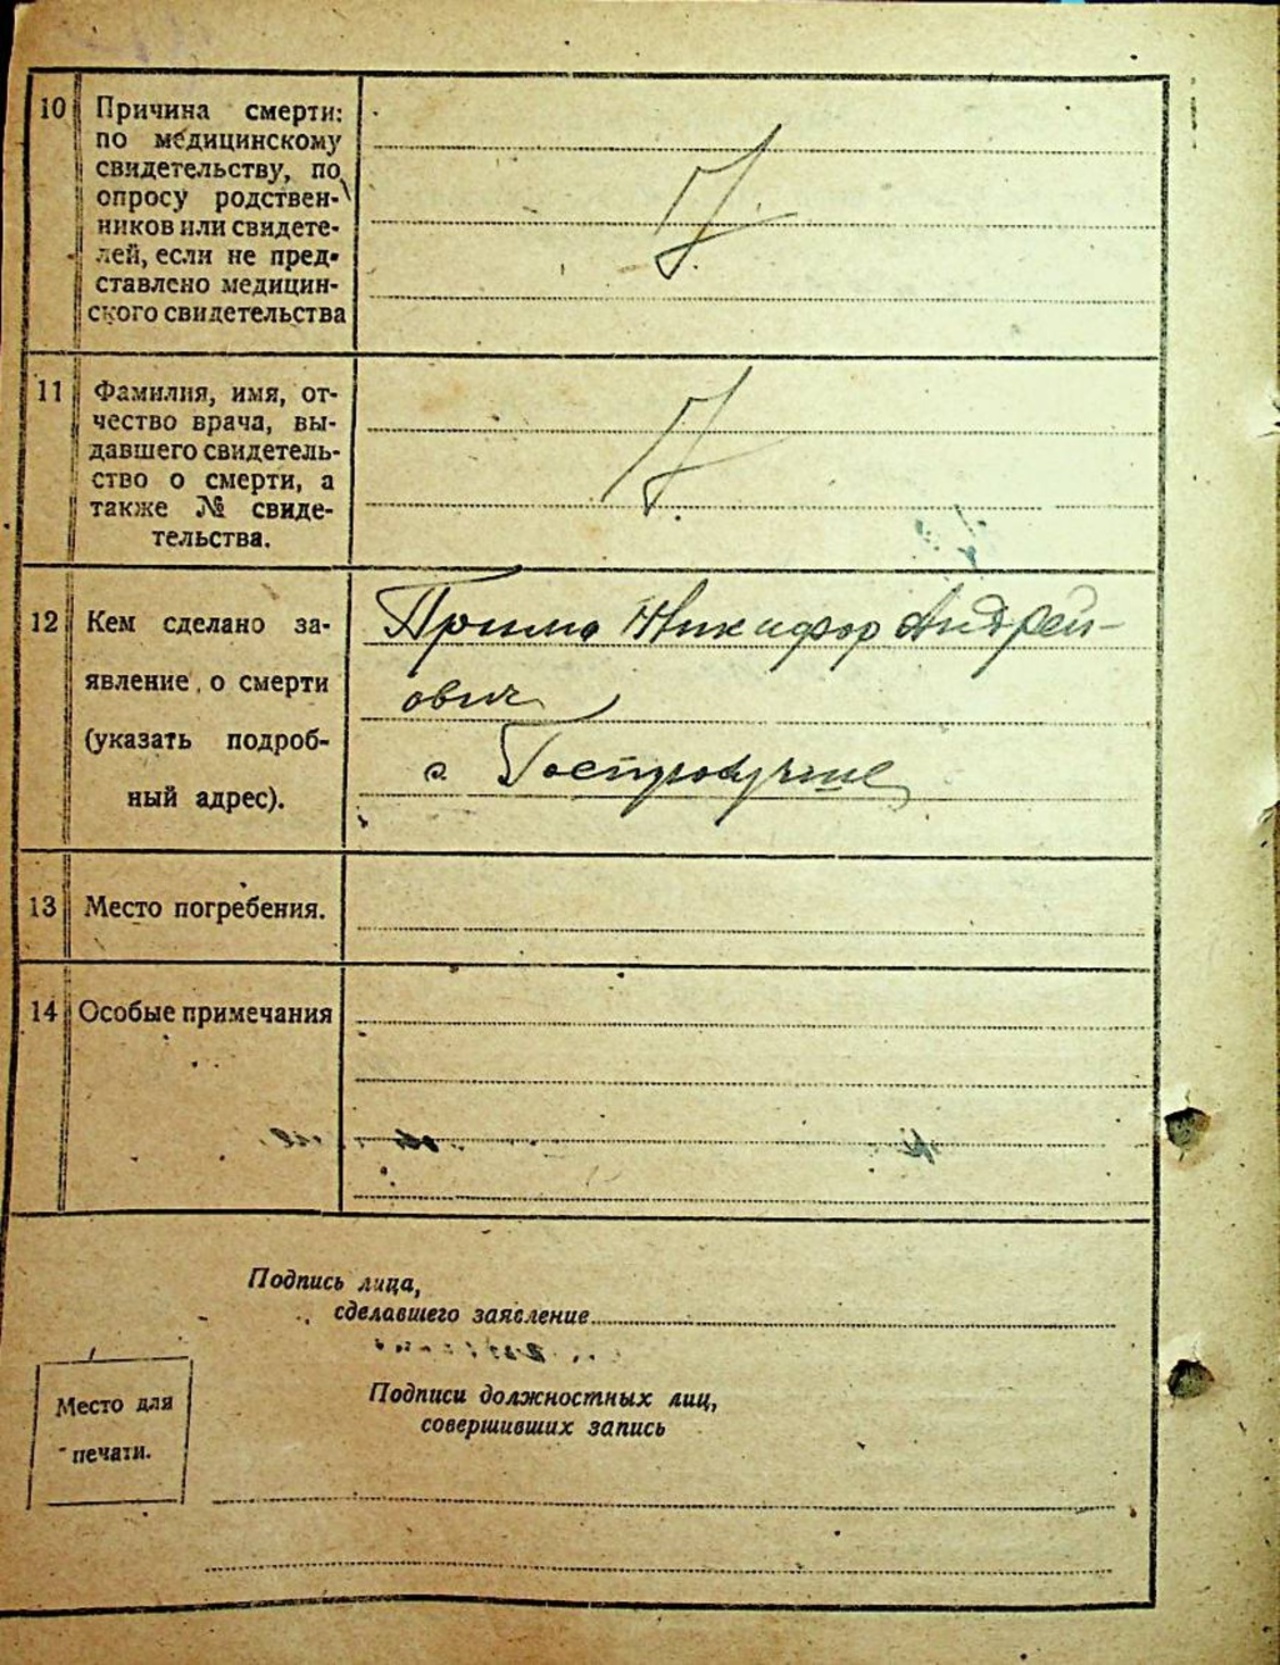 10 Причина смерти:
по медицинскому
свидетельству, по
опросу родствен-
ников или свидете-
лей, если не пред-
ставлено медицин-
ского свидетельства
11 Фамилия, имя, от-
чество врача, вы-
давшего свидетель-
ство о смерти, а
также № свиде-
тельства.
12 Кем сделано за-
явление о смерти
(указать подроб-
ный адрес).
Прима Никифор Андрей-
ович
с.
13 Место погребения.
14 Особые примечания
Подпись лица,
сделавшего заявление
Подписи должностных лиц,
совершивших запись
Место для
печати.